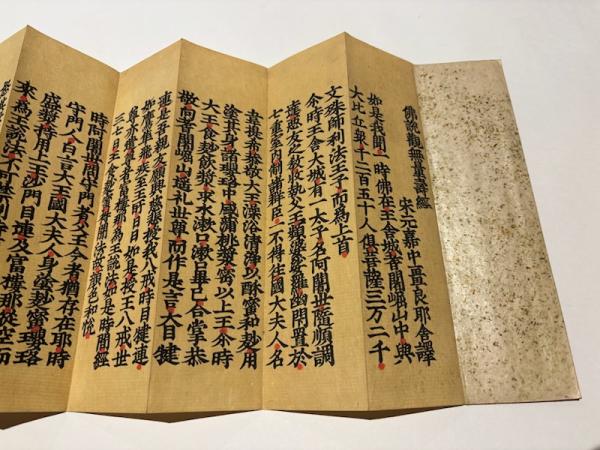 佛說觀無量壽經
宋元嘉中畺良耶舍譯
如是我聞一時佛在王舍城耆闍崛山中與
大比丘眾千二百五十人俱菩薩三万二千
文殊師利法王子而為上首
尒時王舍大城有一太子名阿闍世隨順調
達惡友之教收執父王頻婆娑羅幽閉置於
七重室內制諸群臣一不得往國大夫人名
韋提希恭敬大王澡浴清淨以酥蜜和麨用
塗其身諸瓔珞中盛蒲桃漿蜜以上王尒時
大王食麨飲漿求水漱口漱口畢已合掌恭
敬向耆闍崛山遙礼世尊而作是言大目揵
連是吾親友願興慈悲授我八戒時目揵連
如鷹隼飛疾至王所日日如是授王八戒世
尊亦遣尊者富樓那為王說法如是時間經
三七日王食麨蜜得聞法故顏色和悅
時阿闍世問守門者父王今者猶存在耶時
守門人白言大王國大夫人身塗麨蜜瓔珞
盛漿持用上王沙門目連及富樓那從空而
來為王說法不可禁制